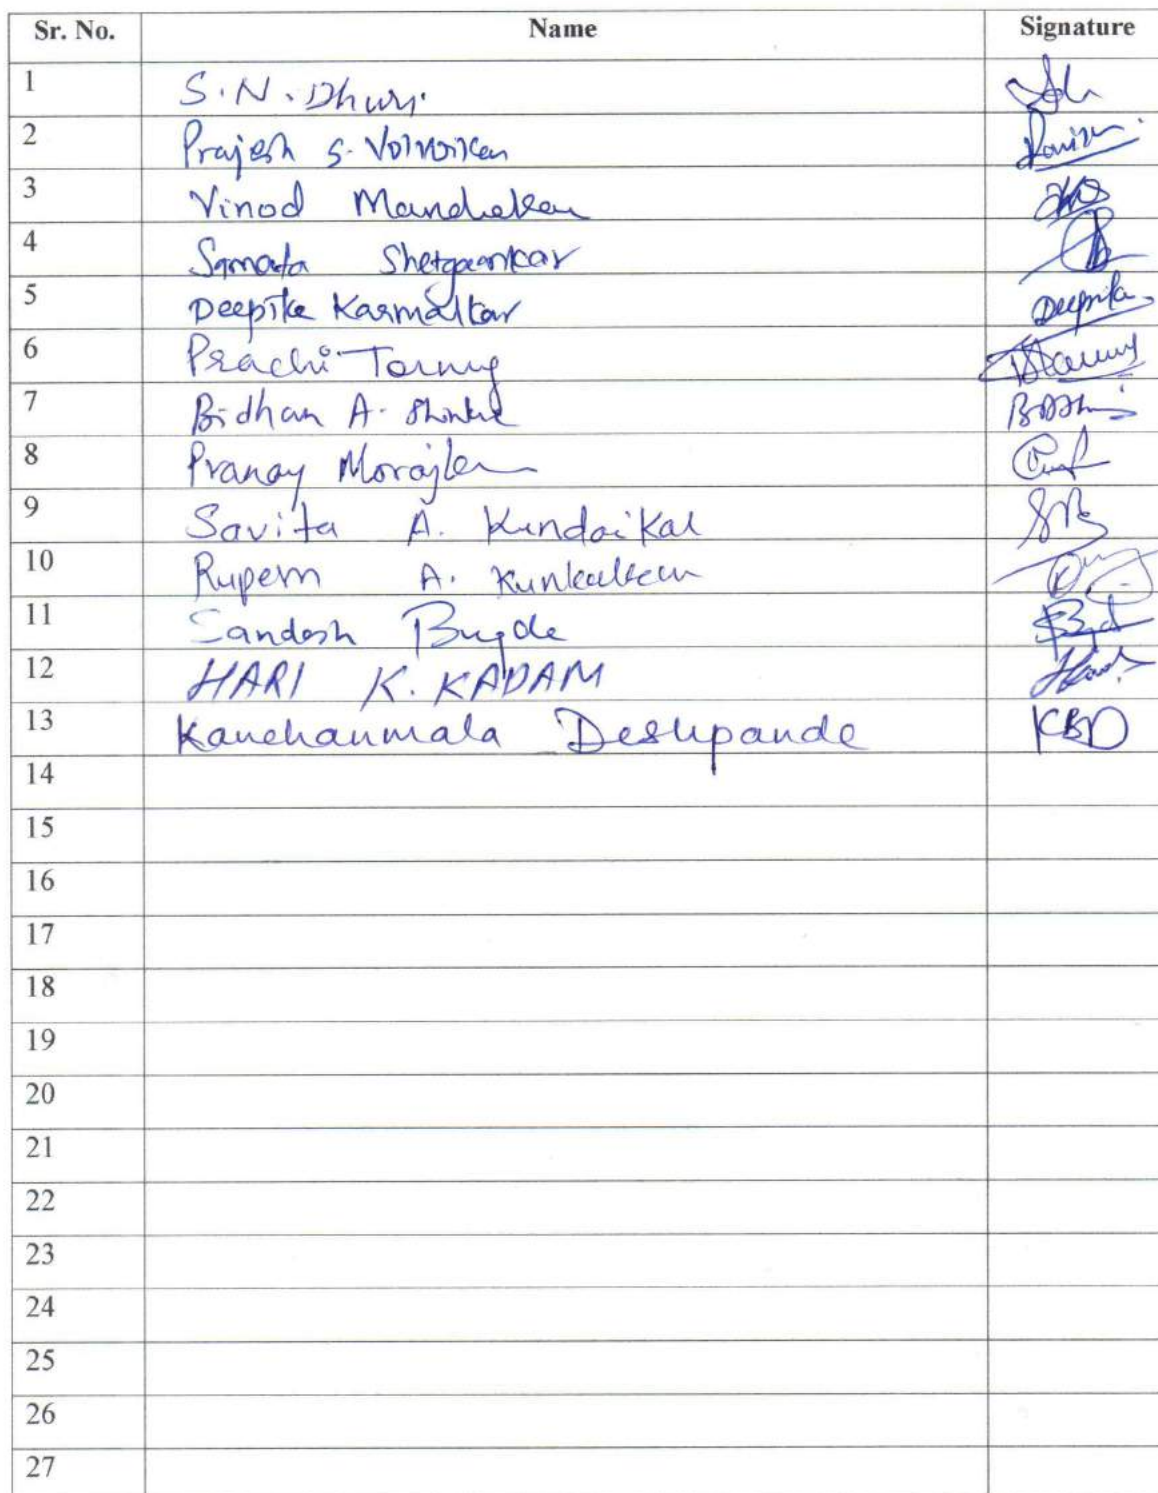 Sr. No. Name Signature
1 S. N. Dhuri
2 Prajesh S. Volvoikar
3 Vinod Mandrekar
4 Samata Shetgaonkar
5 Deepika Karmalkar Deepika
6 Prachi Torney
7 Bidhan A. Shinkre
8 Pranay Morajkar
9 Savita A. Kundaikar
10 Rupesh A.
11 Sandesh Bugde
12 HARI K. KADAM
13 Kanchanmala Deshpande KBD
14
15
16
17
18
19
20
21
22
23
24
25
26
27